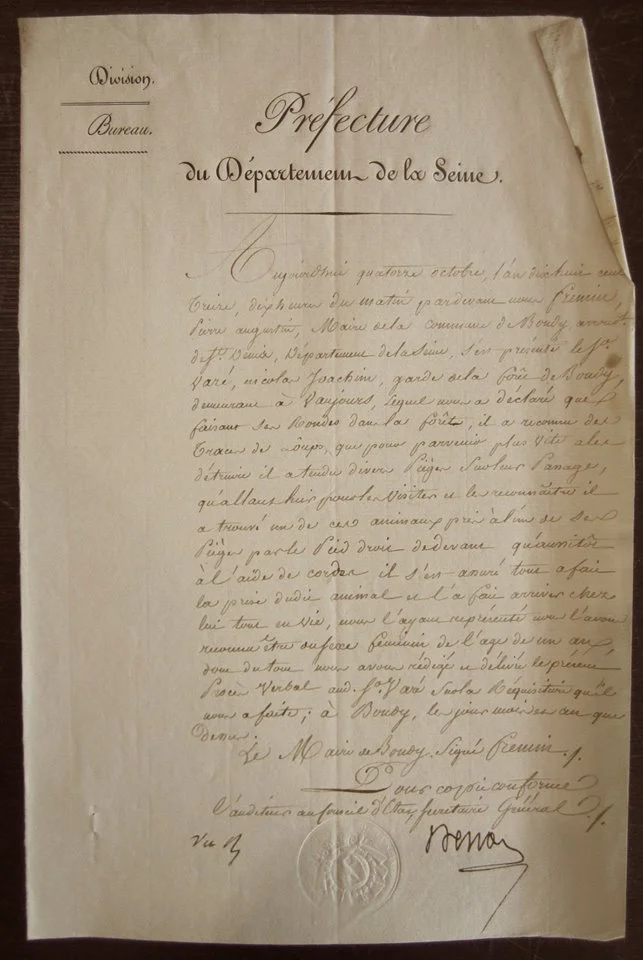 Division.
Bureau.
Préfecture
du Département de la Seine.
Aujourd'hui quatorze octobre, l'an dix huit cent
Treize, dix heures du matin pardevant nous
Pierre augustin, Maire de la commune de Bondy, arrondt.
de St. Denis, Département de la Seine, s'est présenté le Sr.
Varé, nicolas Joachim, garde de la forêt de Bondy,
demeurant à Vaujours, lequel nous a déclaré que
faisant ses Rondes dans la forêt, il a reconnu des
Traces de Loups, que pour parvenir plus vite a les
détruire il a tendu divers Pièges sur leurs Passages,
qu'allant hier pour les visiter et le reconnaître il
a trouvé un de ces animaux pris à l'un de ses
Pièges par le Pied droit de devant qu'aussitôt
à l'aide de cordes il s'est assuré tout a fait
la prise dudit animal et l'a fait arriver chez
lui tout en vie, nous l'ayant représenté nous l'avons
reconnu être du sexe feminin de l'age de un an,
dont du tout nous avons rédigé et délivré le présent
Procès Verbal aud. Sr. Varé sur la Réquisition qu'il
nous a faite; à Bondy, les jour mois et an que
dessus.
Le Maire de Bondy. Signé
Pour copie conforme
L'auditeur au Conseil d'Etat, Secrétaire Général
Vu